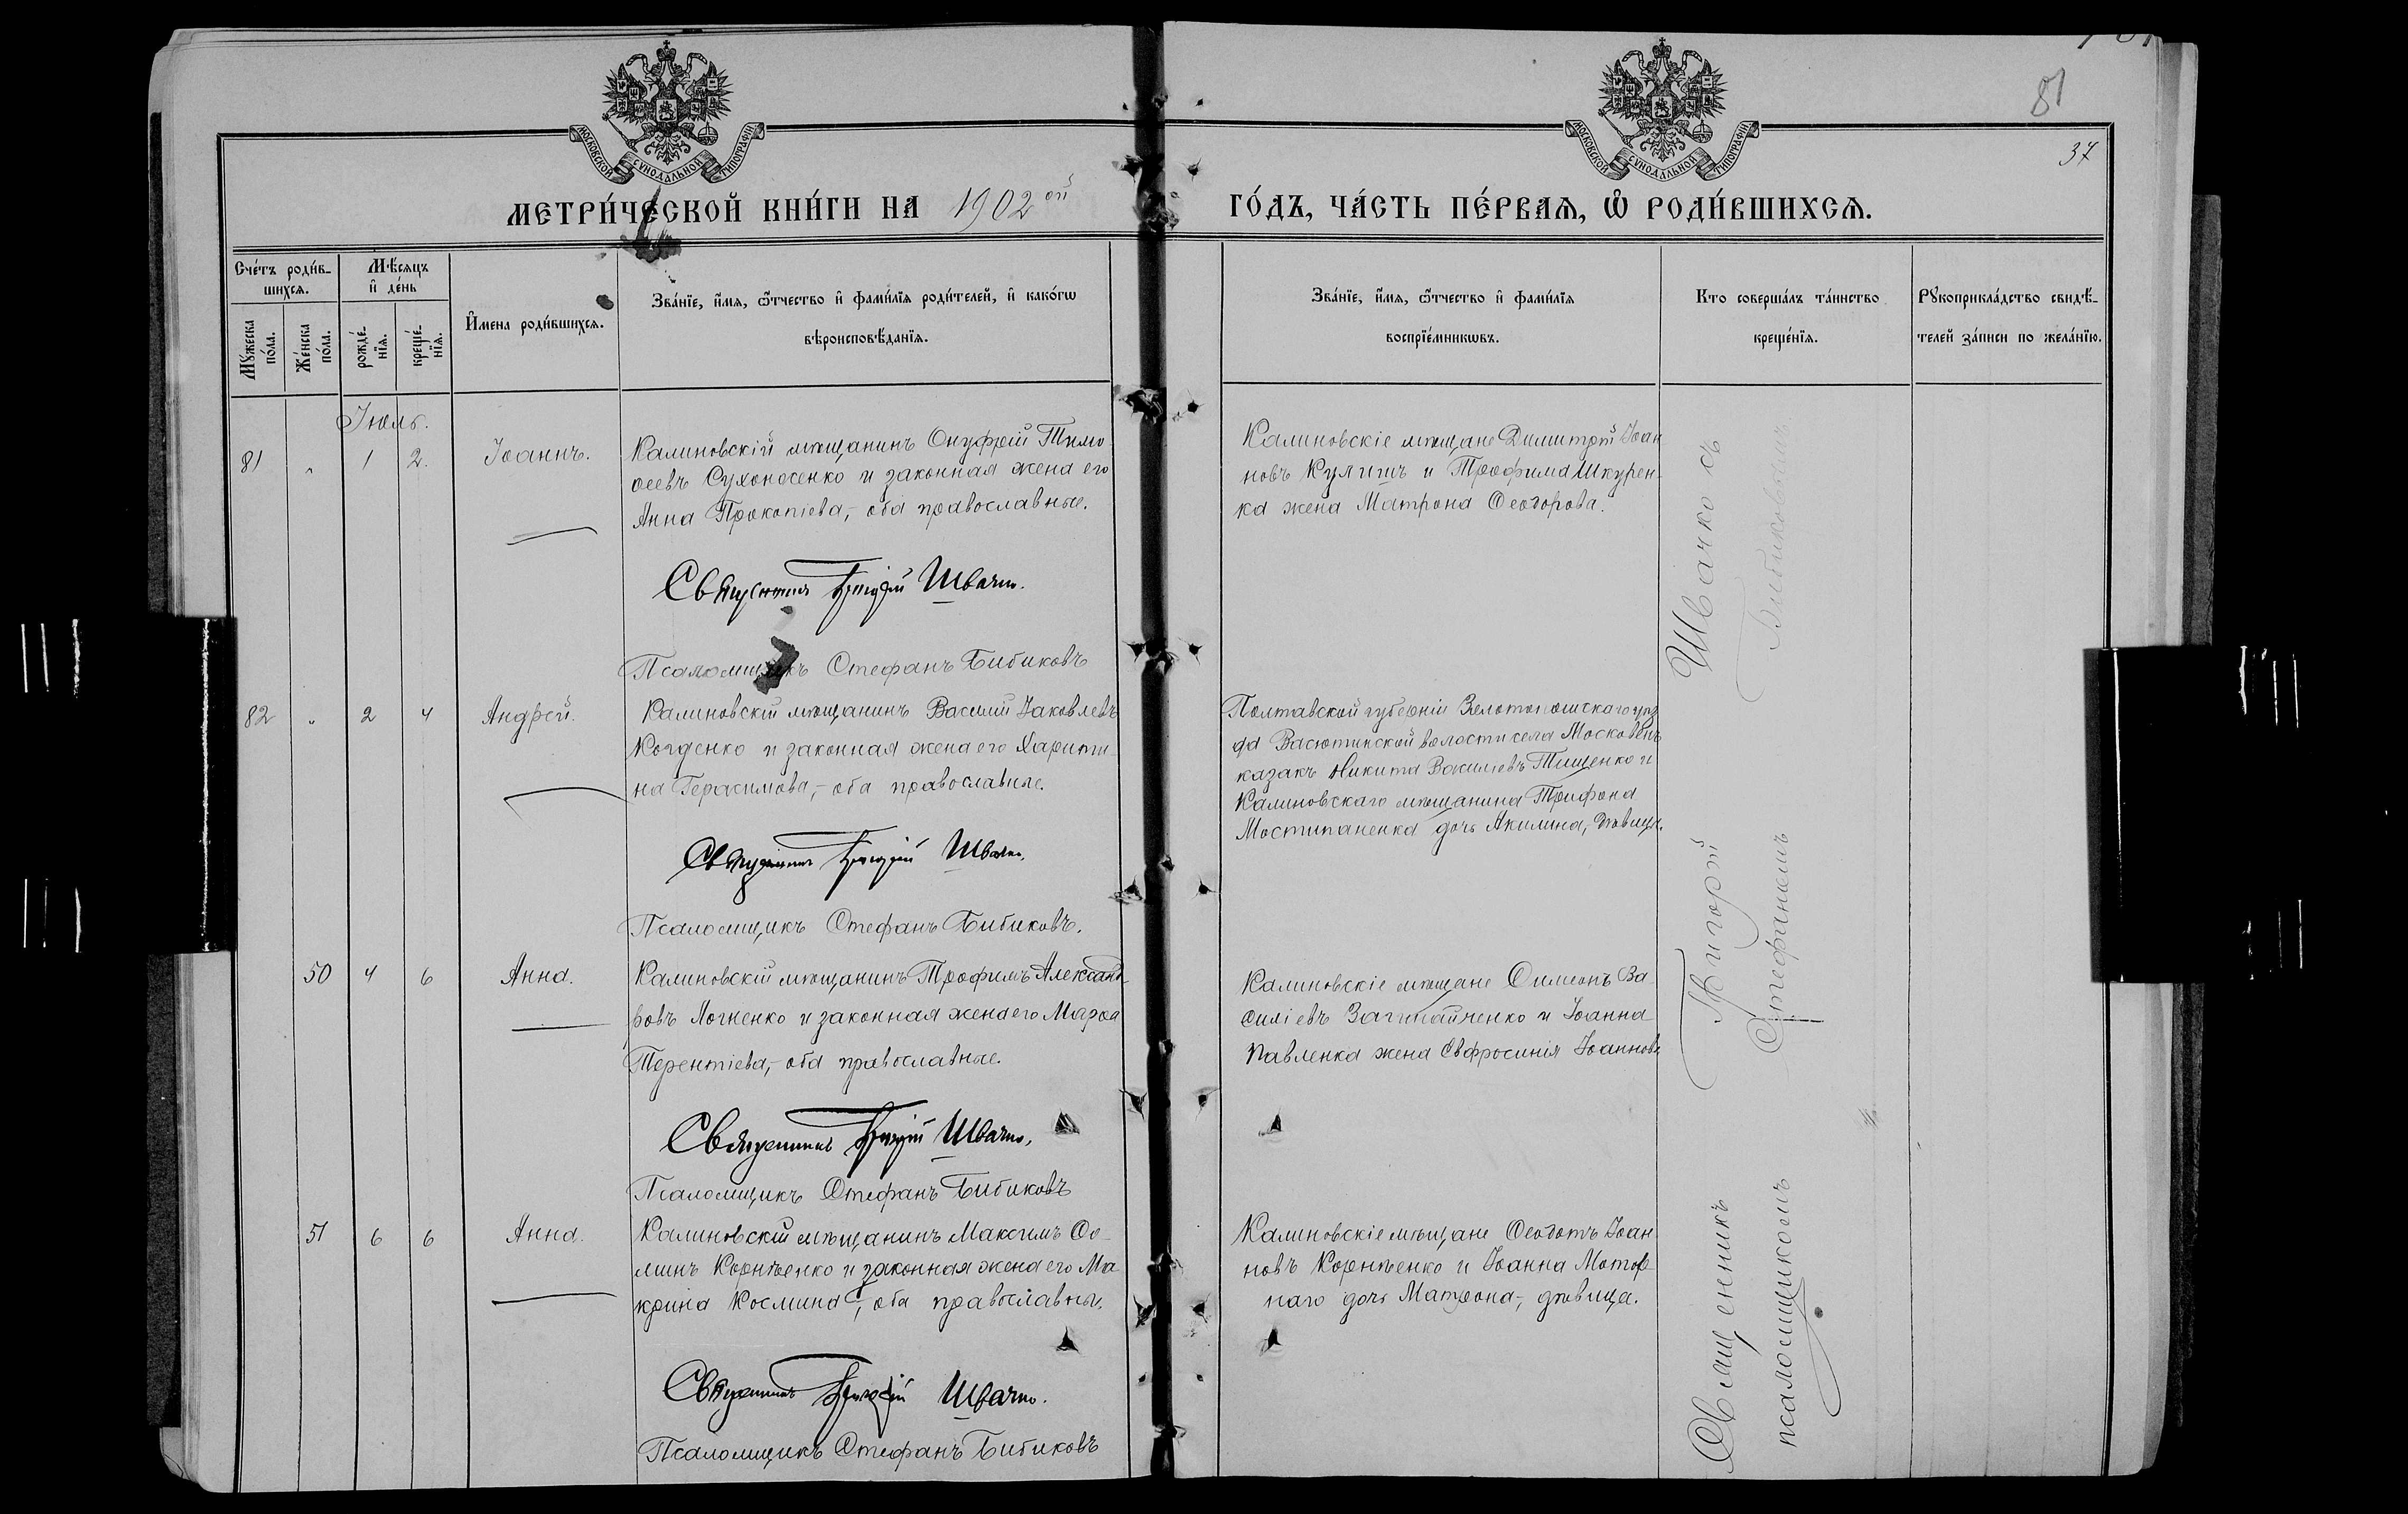 81
37
МОСКОВСКОЙ СѴНОДАЛЬНОЙ ТИПОГРАФІИ
МОСКОВСКОЙ СѴНОДАЛЬНОЙ ТИПОГРАФІИ
МЕТРИ́ЧЕСКОЙ КНИ́ГИ НА 1902ой
ГО́ДЪ, ЧА́СТЬ ПЕ́РВАѦ, Ѡ РОДИ́ВШИХСѦ.
Сче́тъ роди́в-
шихсѧ.
Мꙋ́жеска по́ла.
Же́нска по́ла.
Мѣ́сѧцъ
и҆ де́нь
рожде́-
нїѧ.
креще́-
нїѧ.
И҆мена роди́вшихсѧ.
Зва́нїе, и҆́мѧ, ѻ҆́тчество и҆ фами́лїѧ роди́телей, и҆ како́гѡ
вѣроисповѣ́данїѧ.
Зва́нїе, и҆́мѧ, ѻ҆́тчество и҆ фами́лїѧ
воспрїе́мникѡвъ.
Кто соверша́лъ та́инство
креще́нїѧ.
Рꙋкоприкла́дство свидѣ́-
телей за́писи по жела́нїю.
Іюль.
81 „ 1 2. Іоаннъ.
Калиновскій мѣщанинъ Онуфрій Тимо-
ѳеевъ Сухоносенко и законная жена его
Анна Прокопіева,- оба православные.
Священникъ Григорій Швачко.
Псаломщикъ Стефанъ Бибиковъ
Калиновскіе мѣщане Димитрій Іоан
новъ Кулишъ и Трофима Шкурен-
ка жена Матрона Ѳеодорова.
82 „ 2 4 Андрей.
Калиновскій мѣщанинъ Василій Іаковлевъ
Когденко и законная жена его Харити
на Герасимова,- оба православные.
Священникъ Григорій Швачко.
Псаломщикъ Стефанъ Бибиковъ.
Полтавской губерніи Золотоношскаго уѣз
да Васютинской волости села Московецъ
казакъ Никита Василіевъ Тищенко и
Калиновскаго мѣщанина Трифона
Мостипаненка дочь Акилина,- дѣвица.
50 4 6 Анна.
Калиновскій мѣщанинъ Трофимъ Александ-
ровъ Логненко и законная жена его Марѳа
Терентіева,- оба православные.
Священникъ Григорій Швачко.
Псаломщикъ Стефанъ Бибиковъ
Калиновскіе мѣщане Симеонъ Ва-
силіевъ и Іоанна
Павленка жена Евфросинія Іоаннова
51 6 6 Анна.
Калиновскій мѣщанинъ Максимъ Ѳо-
минъ Корнѣенко и законная жена его Ма
крина Космина, оба православны.
Священникъ Григорій Швачко.
Псаломщикъ Стефанъ Бибиковъ
Калиновскіе мѣщане Ѳеодотъ Іоан
новъ Корнѣенко и Іоанна Мотор
наго дочь Матрона,- дѣвица.
Священникъ Григорій Швачко съ
псаломщикомъ Стефаномъ Бибиковымъ